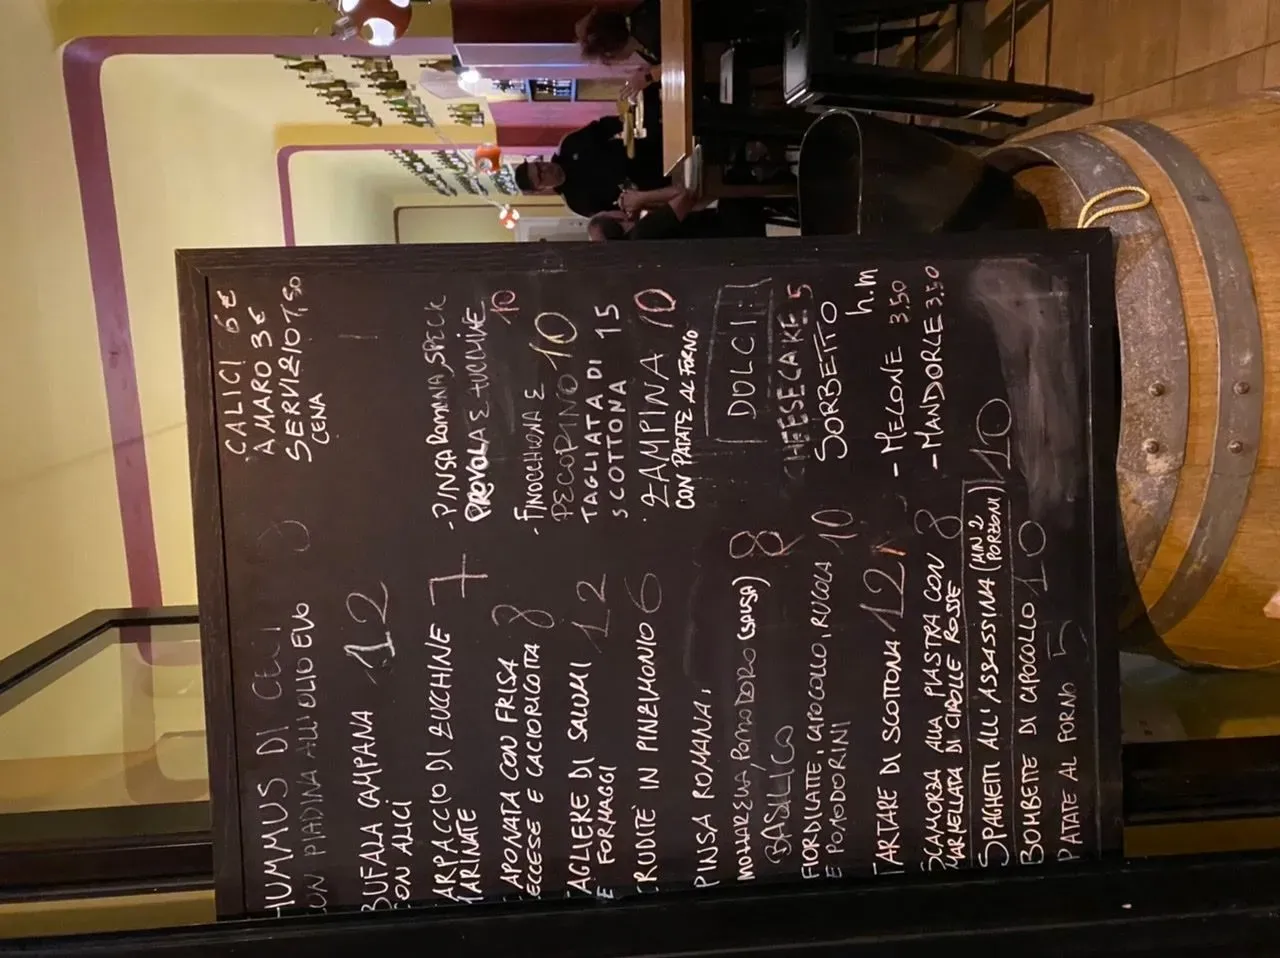 HUMMUS DI CECI
CON PIADINA ALL'OLIO EVO
BUFALA CAMPANA 12
CON ALICI
CARPACCIO DI ZUCCHINE 7
MARINATE
CAPONATA CON FRISA
ECCESE E CACIORICOTTA 8
TAGLIERE DI SALUMI 12
E FORMAGGI
CRUDITÈ IN PINZIMONIO 6
PINSA ROMANA:
MOZZARELLA, POMODORO (SALSA) 8
BASILICO
FIORDILATTE, CAPOCOLLO, RUCOLA 10
E POMODORINI
TARTARE DI SCOTTONA 12
SCAMORZA ALLA PIASTRA CON 8
MARMELLATA DI CIPOLLE ROSSE
SPAGHETTI ALL'ASSASSINA (MIN 2 PORZIONI) 10
BOMBETTE DI CAPOCOLLO 10
PATATE AL FORNO 5
CALICI 6€
AMARO 3€
SERVIZIO 1,50
CENA
- PINSA ROMANA, SPECK
PROVOLA E ZUCCHINE 10
- FINOCCHIONA E
PECORINO 10
TAGLIATA DI 15
SCOTTONA
· ZAMPINA 10
CON PATATE AL FORNO
DOLCI
CHEESECAKE 5
SORBETTO
h.m
- MELONE 3.50
- MANDORLE 3.50